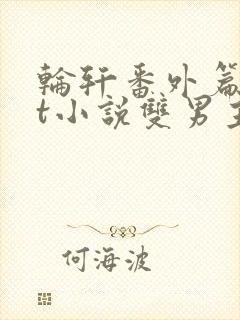 輪轩番外篇
t小説雙男主
何海波